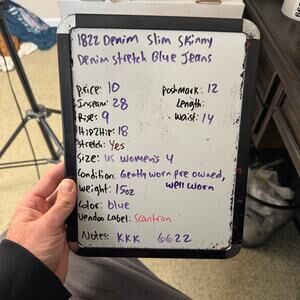 1822 Denim Slim Skinny
Denim Stretch Blue Jeans
Price: 10 Postmark: 12
Inseam: 28 Length:
Rise: 9 Waist: 14
Hip2Hip: 18
Stretch: Yes
Size: US Women's 4
Condition: Gently worn pre owned,
well worn
Weight: 15oz
Color: blue
Vendoo Label: Scantron
Notes: KKK 6622